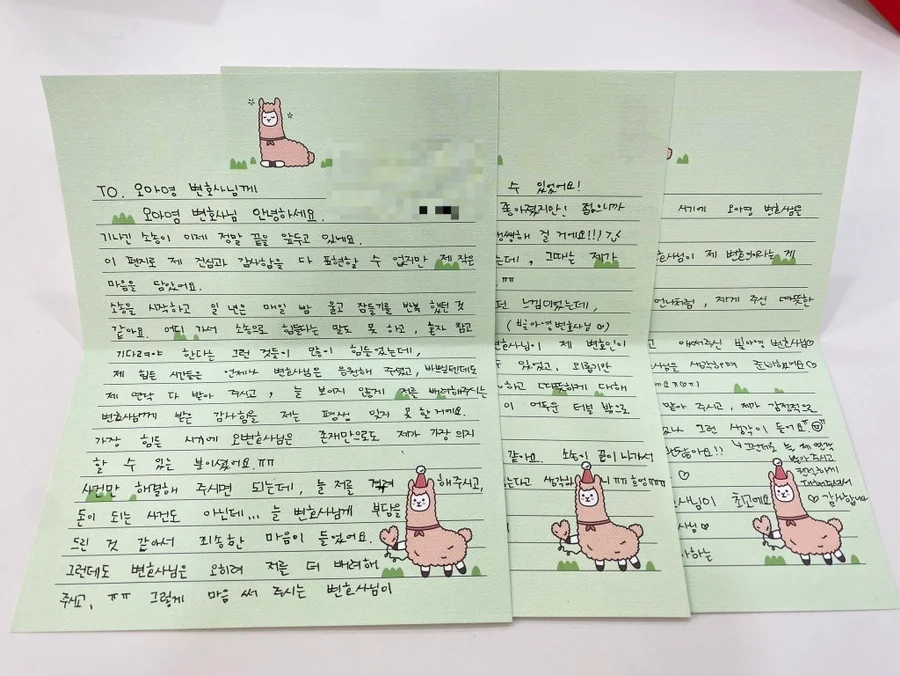 TO. 오아영 변호사님께
오아영 변호사님 안녕하세요.
기나긴 소송이 이제 정말 끝을 앞두고 있네요.
이 편지로 제 진심과 감사함을 다 표현할 수 없지만 제 작은
마음을 담았어요.
소송을 시작하고 일 년은 매일 밤 울고 잠들기를 반복 했던 것
같아요. 어디 가서 소송으로 힘들다는 말도 못 하고, 혼자 참고
기다려야 한다는 그런 것들이 많이 힘들었는데,
제 힘든 시간들은 언제나 변호사님은 응원해 주셨고, 바쁘실텐데도
제 연락 다 받아 주시고, 늘 보이지 않게 저를 배려해주시는
변호사님께 받은 감사함을 저는 평생 잊지 못 할거예요.
가장 힘든 시기에 오변호사님은 존재만으로도 제가 가장 의지
할 수 있는 분이셨어요.ㅠㅠ
사건만 해결해 주시면 되는데, 늘 저를 격려 해주시고,
돈이 되는 사건도 아닌데... 늘 변호사님께 부담을
드린 것 같아서 죄송한 마음이 들었어요.
그런데도 변호사님은 오히려 저를 더 배려해
주시고, ㅠㅠ 그렇게 마음 써 주시는 변호사님이
수 있었어요!
좋아졌지만! 젊으니까
생생해 질 거예요!!!
는데, 그때는 제가
ㅠㅠ
던 느낌이었는데,
변호사님이 제 변호인이
있었고, 외롭기만
하고 따뜻하게 대해
이 어두운 터널 밖으로
같아요. 소송이 끝이 나가서
시기에 오아영 변호쌤을
호사님이 제 변호인이라는 게
언니처럼, 제게 주신 따뜻한
고 애써주신 빛아영 변호사님♡
사님을 생각하며 준비했어요♡
맡아 주시고, 제가 감정적으로
그런 생각이 들어요.
그런데도 늘 제 연락
받아주시고
친절하게
대해주셔서
♡ 감사합니다
사님이 최고예요
♡
사님♡
사하는